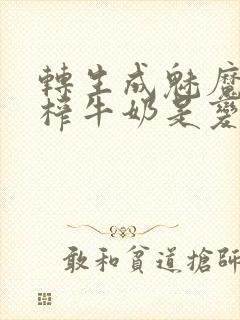 轉生成魅魔
榨牛奶是變
敢和貧道搶師